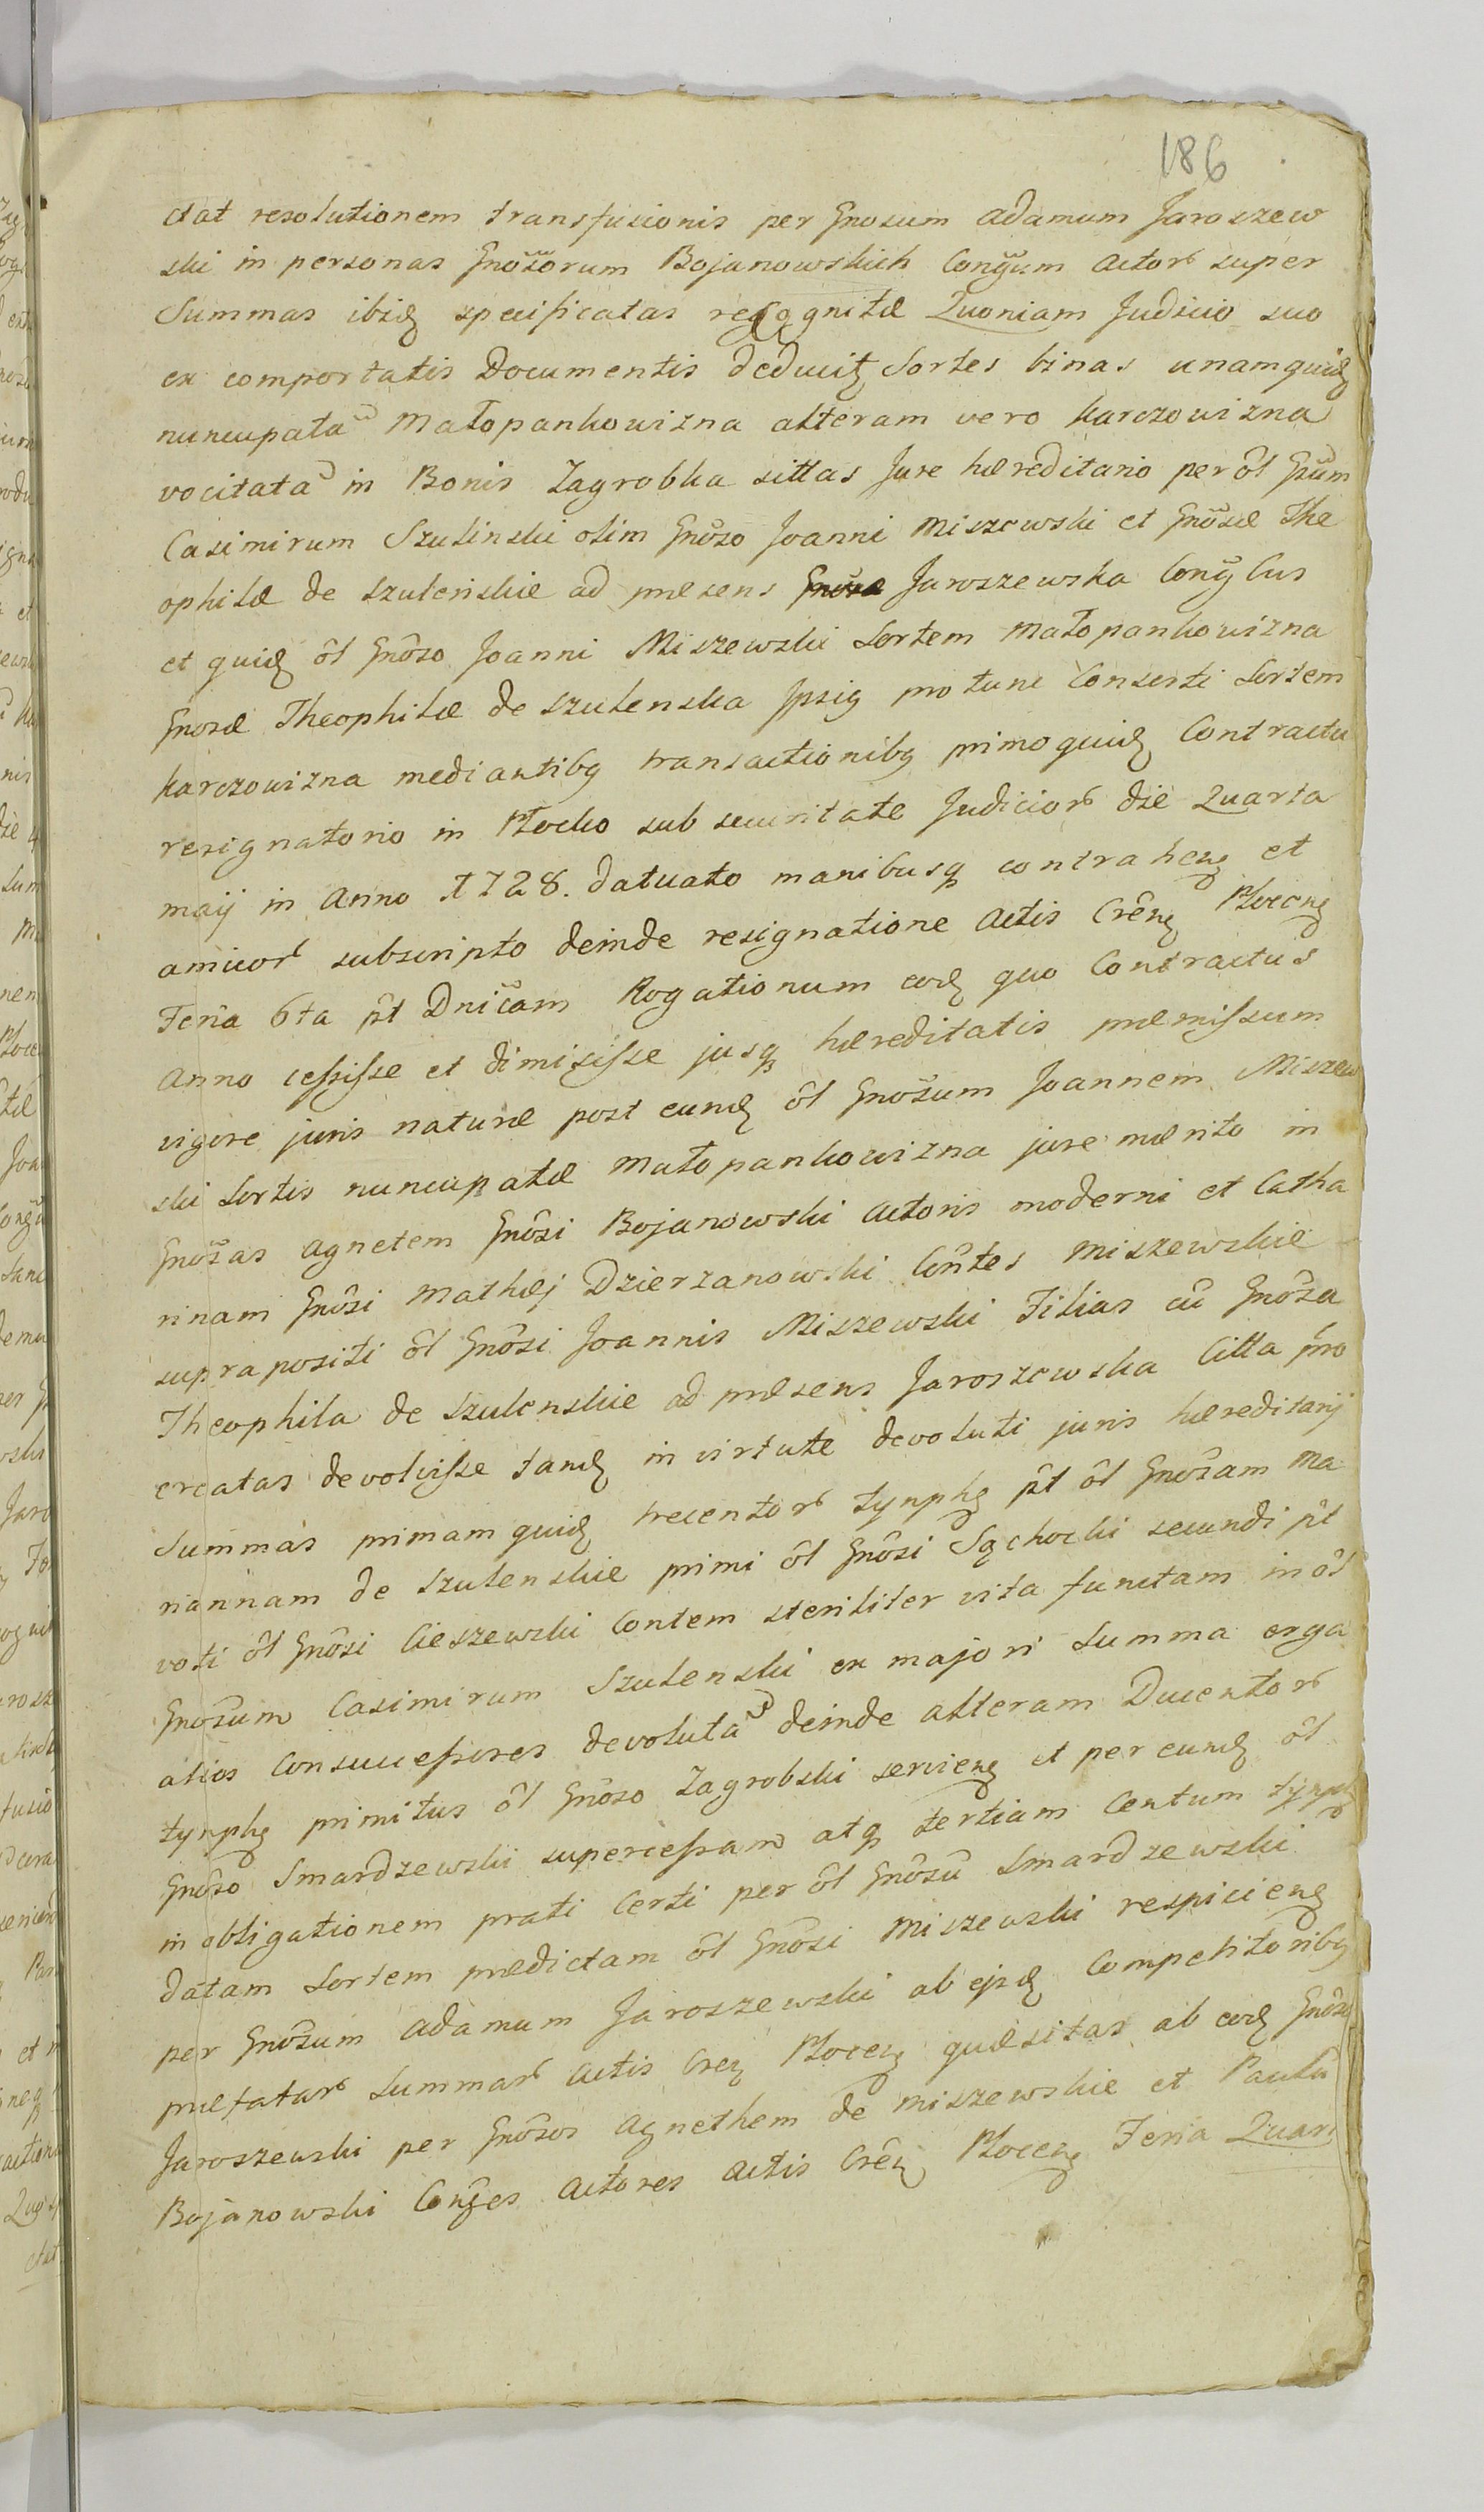 186
ctat resolutionem transfusionis per Gnosum Adamum Jaroszew
ski in personas Gnosorum Bojanowskich Congum Actorū super
Summas ibidę specificatas recognitæ Quoniam Judicio suo
ex comportatis Documentis deducitę Sortes binas unamquidę
nuncupatā Małopankowizna alteram vero Karczowizna
vocitatā in Bonis Zagrobka sittas Jure hæreditario per ôl Gsum
Casimirum Szulinski olim Gnoso Joanni Miszewski et Gnosæ The
ophilæ de Szulenskie ad præsens Gnosæ Jaroszewska Cong Cus
et quidę ôl Gnôso Joanni Miszewski Sortem Małopankowizna
Gnosæ Theophilæ de Szulenska Ipsię pro tunc Conserti Sortem
Karczowizna mediantibę transactionibę primo quidę Contractu
resignatorio in Płocko sub securitate Judiciorū die Quarta
maij in Anno 1728. datuato manibusq contrahenę et
amicorū subscripto deinde resignatione Actis Crênę Płocenę
Feria 6ta pt Dnicam Rogationum eodę quo Contractus
Anno cessisse et dimisisse jusq hæreditatis præmissum
vigore juris naturæ post eundę ôl Gnosum Joannem Miszew
ski Sortis nuncupatæ Małopankowizna jure mærito in
Gnosas Agnetem Gnôsi Bojanowski Actoris moderni et Catha
rinam Gnôsi Mathæj Dzierzanowski Côntes Miszewskie
suprapositi ôl Gnôsi Joannis Miszewski Filias cū Gnôsa
Theophila de Szulenskie ad præsens Jaroszewska Citta pmo
creatas devolvisse tandę in virtute devoluti juris hæreditarij
Summas primam quidę trecentorū tynphę pt ôl Gnôsam Ma
riannam de Szulenskie primi ôl Gnôsi Sąchocki secundi pt
voti ôl Gnôsi Cieszewski Contem steriliter vita functam in ôl
Gnôsum Casimirum Szulenski ex majori Summa erga
alios Consuccessores devolutā deinde alteram Ducentorū
tynphę primitus ôl Gnôso Zagrobski servienę et per eundę ôl
Gnôso Smardzewski supercessam atq tertiam Centum tynph
in obligationem prati Certi per ôl Gnôsū Smardzewski
datam Sortem prædictam ôl Gnôsi Miszewski respicienę
per Gnôsum Adamum Jaroszewski ab ejsdę Competitoribę
præfatarū Summarū Actis Crenę Płocenę quæsitas ab eodę Gnôso
Jaroszewski per Gnôsos Agnethem de Miszewskie et Paulū
Bojanowski Conges Actores Actis Crênę Płocenę Feria Quar